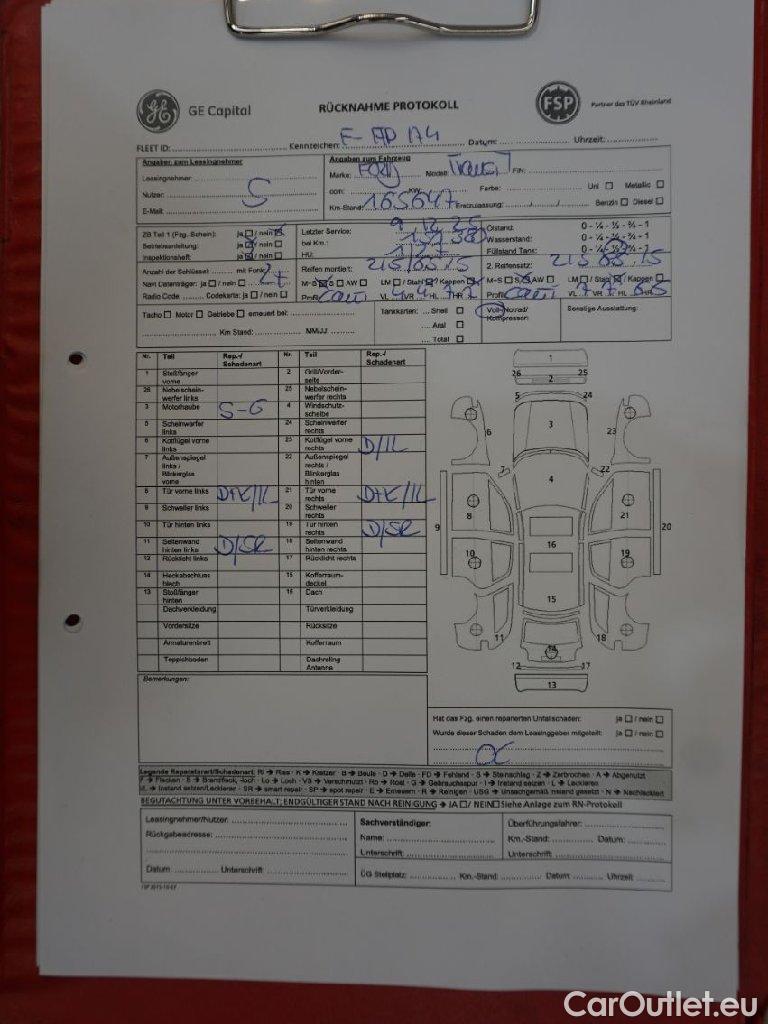 GE Capital
RÜCKNAHME PROTOKOLL
FSP
Partner des TÜV Rheinland
FLEET ID: Kennzeichen: Datum: Uhrzeit:
Angaben zum Leasingnehmer
Angaben zum Fahrzeug
Leasingnehmer
Marke: FORD Modell: Transit FIN:
Nutzer: S
ccm: KW: Farbe: Uni Metallic
E-Mail:
Km-Stand: 165647 Erstzulassung: Benzin Diesel
ZB Teil 1 (Fzg. Schein): ja / nein
Betriebsanleitung: ja / nein
Inspektionsheft ja / nein
Letzter Service:
bei Km.:
HU:
Ölstand: 0 - ¼ - ½ - ¾ - 1
Wasserstand: 0 - ¼ - ½ - ¾ - 1
Füllstand Tank: 0 - ¼ - ½ - ¾ - 1
Anzahl der Schlüssel mit Funk:
Navi Datenträger: ja / nein
Radio Code Codekarte: ja / nein
Reifen montiert: 215/65 15
M+S S AW LM / Stahl / Kappen
Profil VL VR HL HR
2. Reifensatz: 215 65 15
M+S S AW LM / Stahl / Kappen
Profil VL VR HL HR
Tacho Motor Getriebe erneuert bei:
Km Stand: MM.JJ
Tankkarten: Shell
Aral
Total
Voll-/Notrad/
Kompressor:
Sonstige Ausstattung:
Nr. Teil Rep./ Schadenart Nr. Teil Rep./ Schadenart
1 Stoßfänger vorne 2 Grill/Vorderseite
26 Nebelscheinwerfer links 25 Nebelscheinwerfer rechts
3 Motorhaube S-G 4 Windschutzscheibe
5 Scheinwerfer links 24 Scheinwerfer rechts
6 Kotflügel vorne links 23 Kotflügel vorne rechts D/IL
7 Außenspiegel links / Blinkerglas vorne 22 Außenspiegel rechts / Blinkerglas hinten
8 Tür vorne links D+K/IL 21 Tür vorne rechts D+K/IL
9 Schweller links 20 Schweller rechts
10 Tür hinten links 19 Tür hinten rechts D/SR
11 Seitenwand hinten links D/SR 18 Seitenwand hinten rechts
12 Rücklicht links 17 Rücklicht rechts
14 Heckabschlussblech 15 Kofferraumdeckel
13 Stoßfänger hinten 16 Dach
Dachverkleidung Türverkleidung
Vordersitze Rücksitze
Armaturenbrett Kofferraum
Teppichboden Dachreling Antenne
1
26 25
2
5 24
6 3 23
7 22
4
8 21
9 20
16
10 19
15
11 18
14
12 17
13
Bemerkungen:
Hat das Fzg. einen reparierten Unfallschaden: ja / nein
Wurde dieser Schaden dem Leasinggeber mitgeteilt: ja / nein
Legende Reparaturart/Schadenart: RI → Riss - K → Kratzer - B → Beule - D → Delle - FD → Fehlend - S → Steinschlag - Z → Zerbrochen - A → Abgenutzt
F → Flecken - B → Brandfleck, -loch - Lo → Loch - VS → Verschmutzt - Ro → Rost - G → Gebrauchsspur - I → Instand setzen - L → Lackieren
IL → Instand setzen/Lackieren - SR → smart repair - SP → spot repair - E → Erneuern - R → Reinigen - USG → Unsachgemäß instand gesetzt - N → Nachlackiert
BEGUTACHTUNG UNTER VORBEHALT; ENDGÜLTIGER STAND NACH REINIGUNG → JA / NEIN Siehe Anlage zum RN-Protokoll
Leasingnehmer/Nutzer:
Rückgabeadresse:
Datum Unterschrift:
Sachverständiger:
Name:
Unterschrift:
Überführungsfahrer:
Km.-Stand: Datum:
Unterschrift:
ÜG Stellplatz: Km.-Stand: Datum: Uhrzeit:
CarOutlet.eu